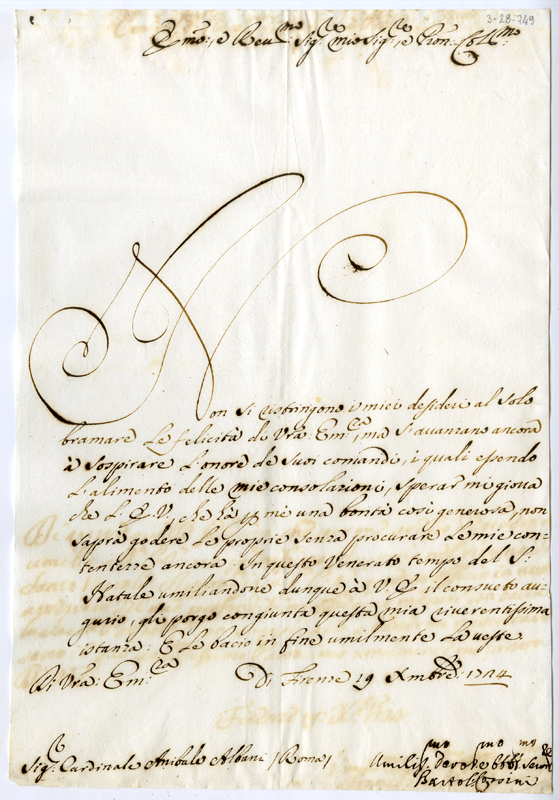 3-28-749
Emo: e Reumo Sigre mio Sigre, e Pron: Colmo:
Non si ristringono i miei desideri al solo
bramare le felicità di Vra: Emza, ma si auanzano ancora
à sospirare l'onore de suoi comandi, i quali essendo
l'alimento delle mie consolazioni, sperar mi gioua
che l'E.V., che hà p me una bontà così generosa, non
saprà godere le proprie senza procurare le mie con-
tentezze ancora. In questo Venerato tempo del S:
Natale umiliandone dunque à V.E. il consueto au-
gurio, gli porgo congiunta questa mia riuerentissima
istanza: E le bacio in fine umilmente la ueste.
Di Vra: Emza
Di Firenze 19 Xmbre: 1714
Sigre Cardinale Anibale Albani /Roma/
Umilismo Deuoto Obbmo Seruore
Bartol: Corsini